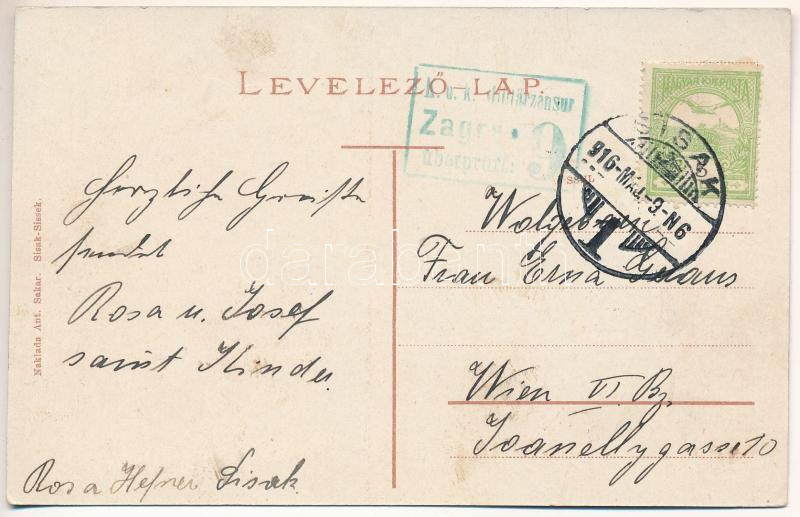 LEVELEZŐ-LAP.
K. u. k. Militärzensur
Zagreb 9
überprüft:
MAGYAR KIR. POSTA
SISAK
916-MÁJ.-9-N6
1
Herzliche Grüße
sendet
Rosa u. Josef
samt Kinder.
Rosa Hefner Sisak
Frau Erna
Wien VI. Bz.
Joanellygasse 10
Naklada Ant. Sakar. Sisak-Sissek.
darabanth